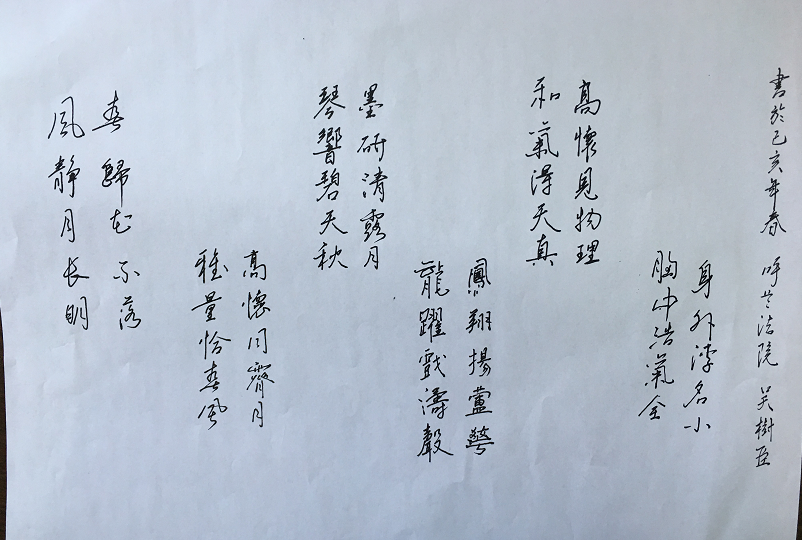 書於己亥年春 呼兰法院 吴樹臣
身外浮名小
胸中浩氣全
高懷見物理
和氣得天真
鳳翔揚
龍躍戲濤聲
墨研清露月
琴響碧天秋
高懷同霽月
雅量恰春風
春歸花不落
風静月长明